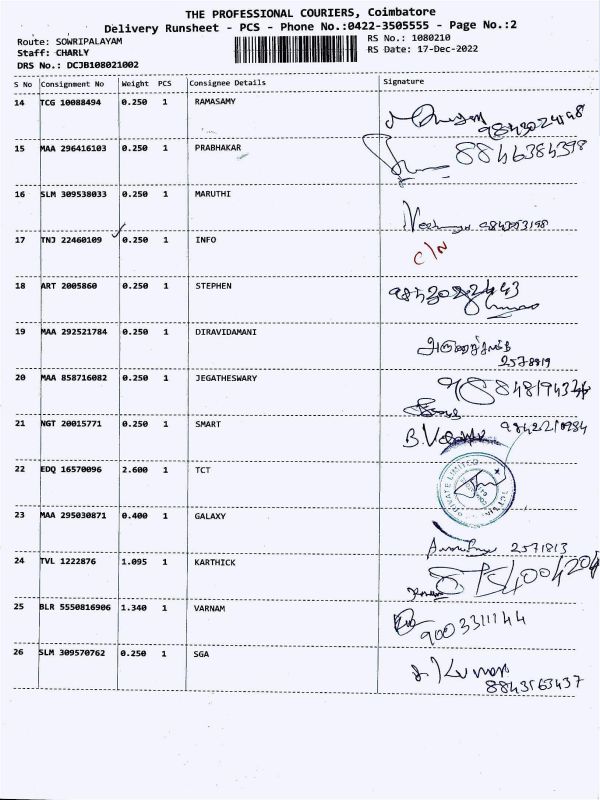 THE PROFESSIONAL COURIERS, Coimbatore
Delivery Runsheet - PCS - Phone No.:0422-3505555 - Page No.:2
Route: SOWRIPALAYAM RS No.: 1080210
Staff: CHARLY RS Date: 17-Dec-2022
DRS No.: DCJB108021002
S No Consignment No Weight PCS Consignee Details Signature
14 TCG 10088494 0.250 1 RAMASAMY
15 MAA 296416103 0.250 1 PRABHAKAR 8846384398
16 SLM 309538033 0.250 1 MARUTHI
17 TNJ 22460109 0.250 1 INFO C/N
18 ART 2005860 0.250 1 STEPHEN
19 MAA 292521784 0.250 1 DIRAVIDAMANI
2578819
20 MAA 858716082 0.250 1 JEGATHESWARY
21 NGT 20015771 0.250 1 SMART
22 EDQ 16570096 2.600 1 TCT PRIVATE LIMITED
23 MAA 295030871 0.400 1 GALAXY
2571813
24 TVL 1222876 1.095 1 KARTHICK
25 BLR 5550816906 1.340 1 VARNAM 9003311144
26 SLM 309570762 0.250 1 SGA Kumar
8843563437